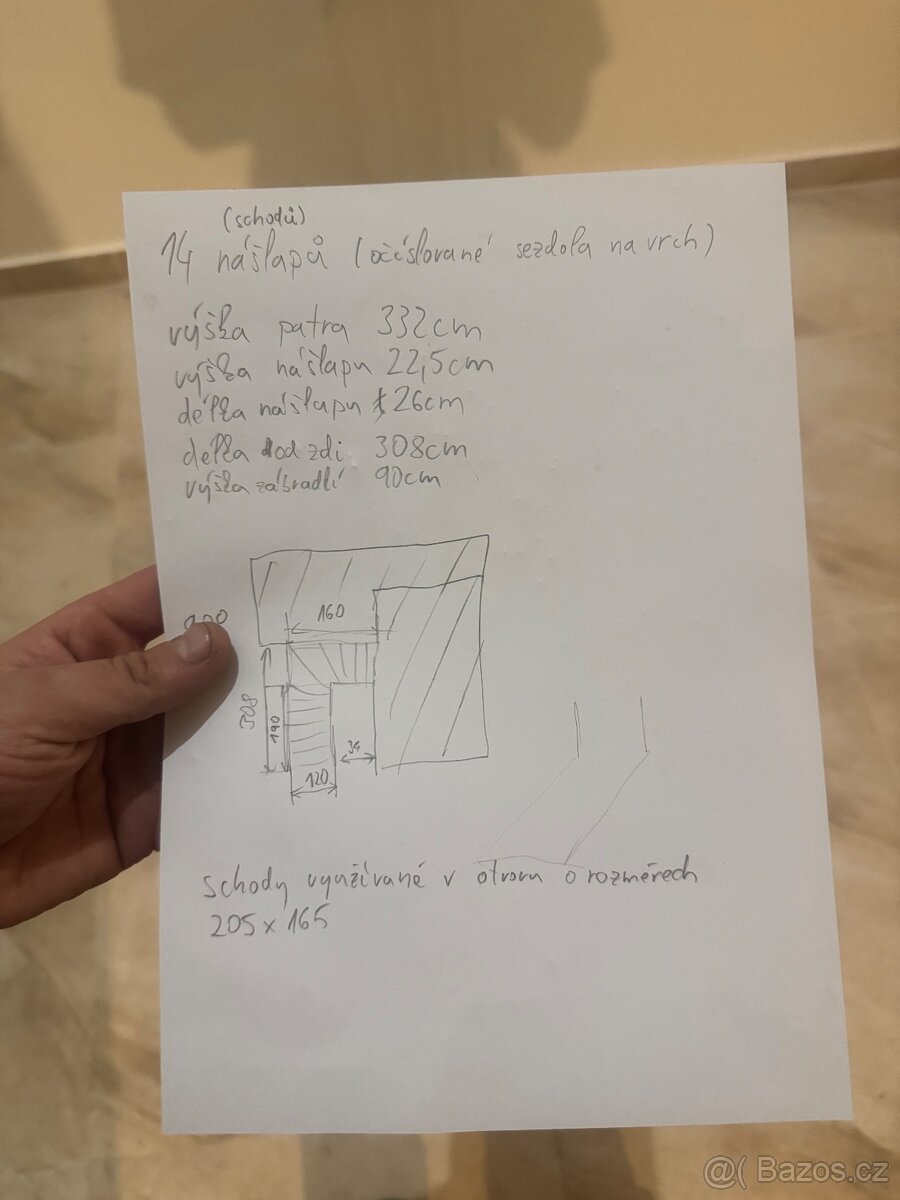 (schodů)
14 nášlapů (očíslované sezdola na vrch)
výška patra 332cm
výška nášlapu 22,5cm
délka nášlapu 26cm
délka od zdi 308cm
výška zábradlí 90cm
160
308
190
34
120
schody využívané v otvoru o rozměrech
205 x 165
@( Bazos.cz